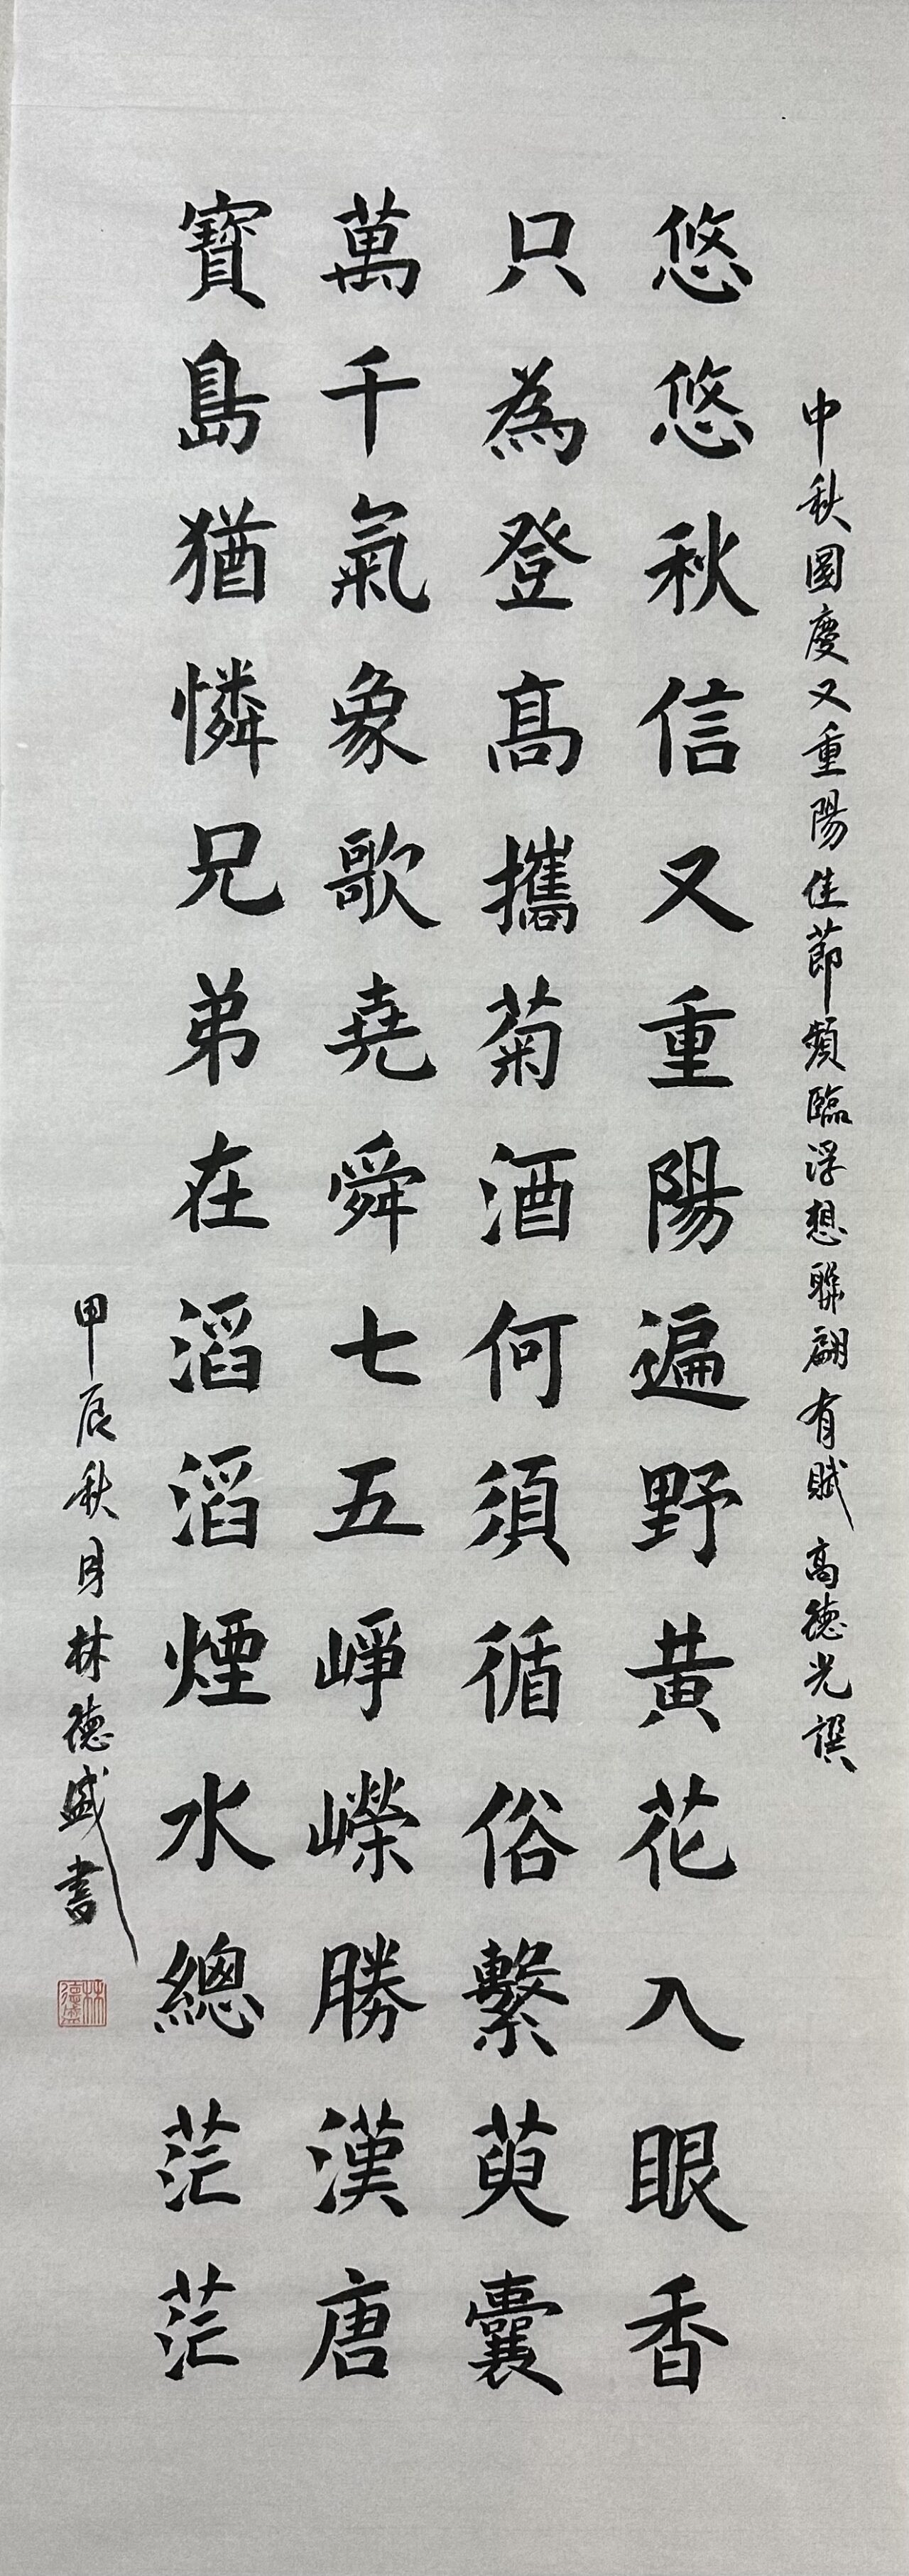 中秋國慶又重陽佳節頻臨浮想聯翩有賦 高德光撰
悠悠秋信又重陽遍野黄花入眼香
只為登高攜菊酒何須循俗繫萸囊
萬千氣象歌堯舜七五崢嶸勝漢唐
寶島猶憐兄弟在滔滔煙水總茫茫
甲辰秋月林德盛書
林德盛